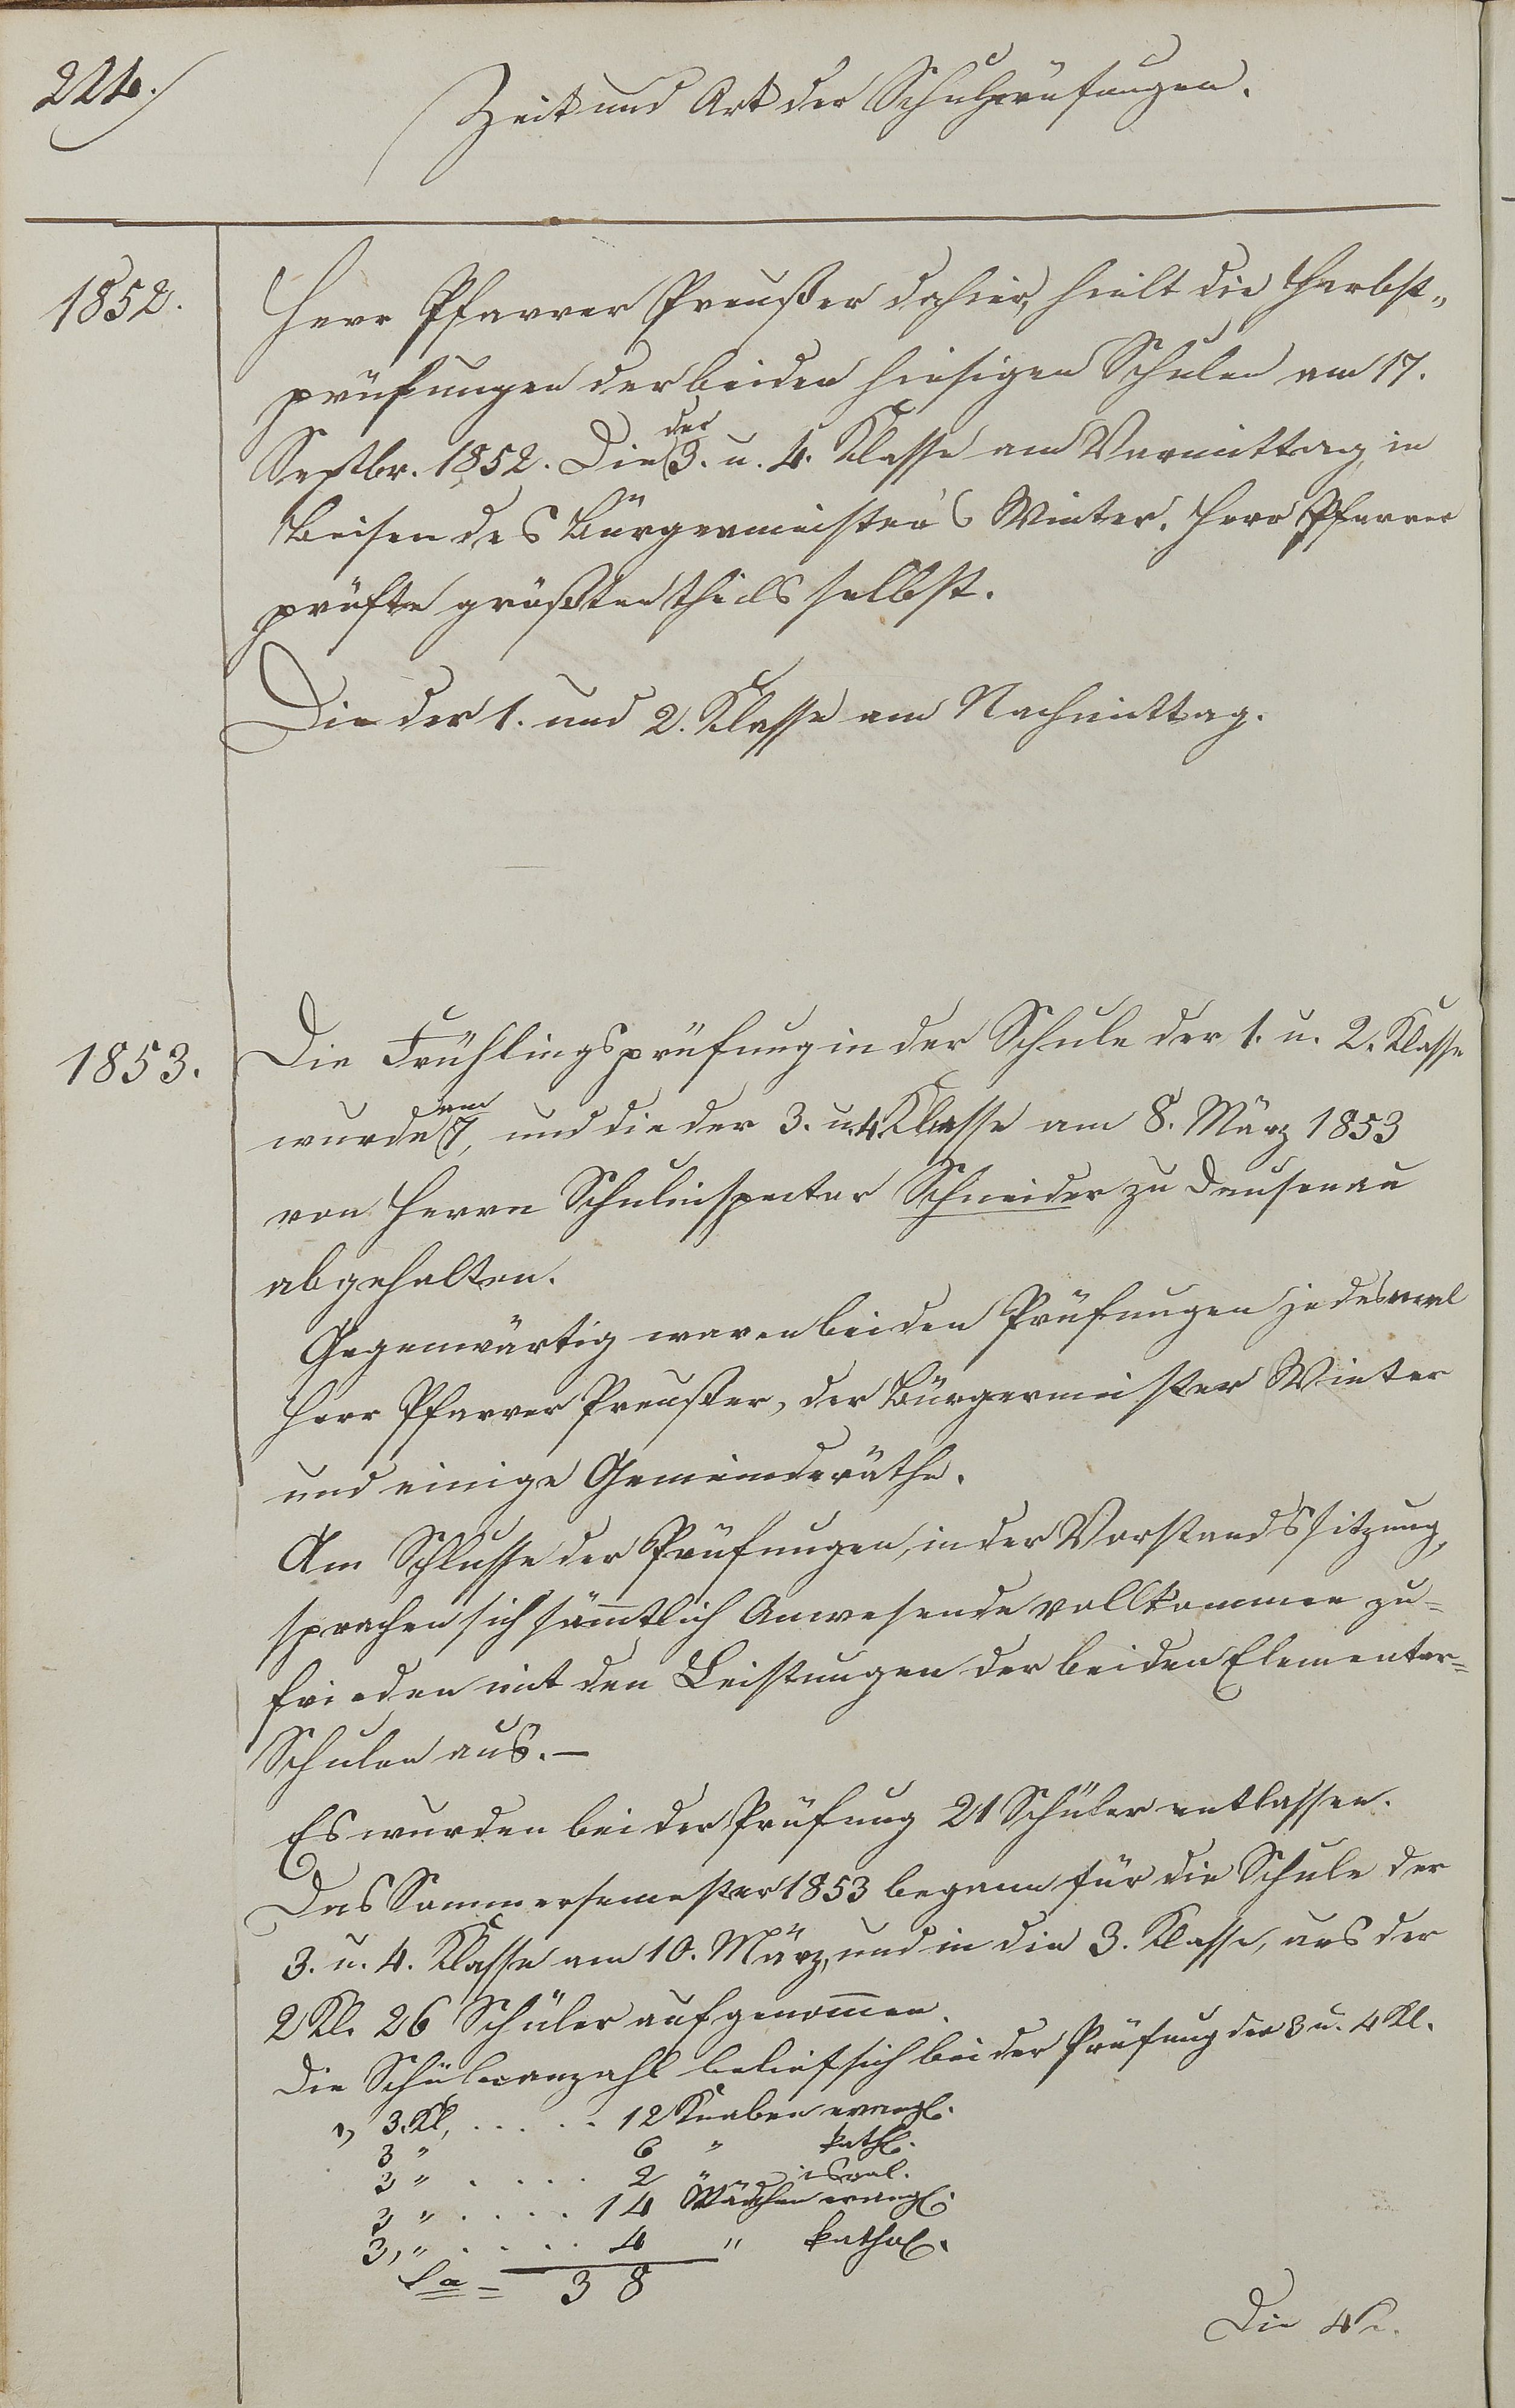 224.
Zeit und Art der Schulprüfungen.
1852.
Herr Pfarrer Preußer dahier, hielt die Herbst„
prüfungen der beiden hiesigen Schulen am 17.
Septbr. 1852. Die der 3. u. 4. Klasse am Vormittag, in
Beisen des Bürgermeister's Winter. Herr Pfarrer
prüfte größtentheils selbst.
Die der 1. und 2. Klasse am Nachmittag.
1853.
Die Frühlingsprüfung in der Schule der 1. u. 2. Klasse
wurde am 7, und die der 3. u. 4 Klasse am 8. März 1853
von Herrn Schulinspector Schneider zu Dausenau
abgehalten.
Gegenwärtig waren bei den Prüfungen jedesmal
Herr Pfarrer Preußer, der Bürgermeister Winter
und einige Gemeinderäthe.
Am Schlusse der Prüfungen, in der Vorstandssitzung,
sprachen sich sämtlich Anwesende vollkommen zu=
frieden mit den Leistungen der beiden Elementar=
Schulen aus. —
Es wurden bei der Prüfung 21 Schüler entlassen.
Das Sommersemester 1853 begann für die Schule der
3. u. 4. Klasse am 10. März, und in die 3. Klasse, aus der
2 Kl. 26 Schüler aufgenommen.
Die Schüleranzahl belief sich bei der Prüfung der 3 u. 4 Kl.
1, 3. Kl, . . . . . 12 Knaben evangl.
3 " 6 " kathl.
3 " . . . . . 2 " israel.
3 " . . . . . 14 Mädchen evangl.
3, " . . . . . 4 " kathol.
Sa = 38
Die 4